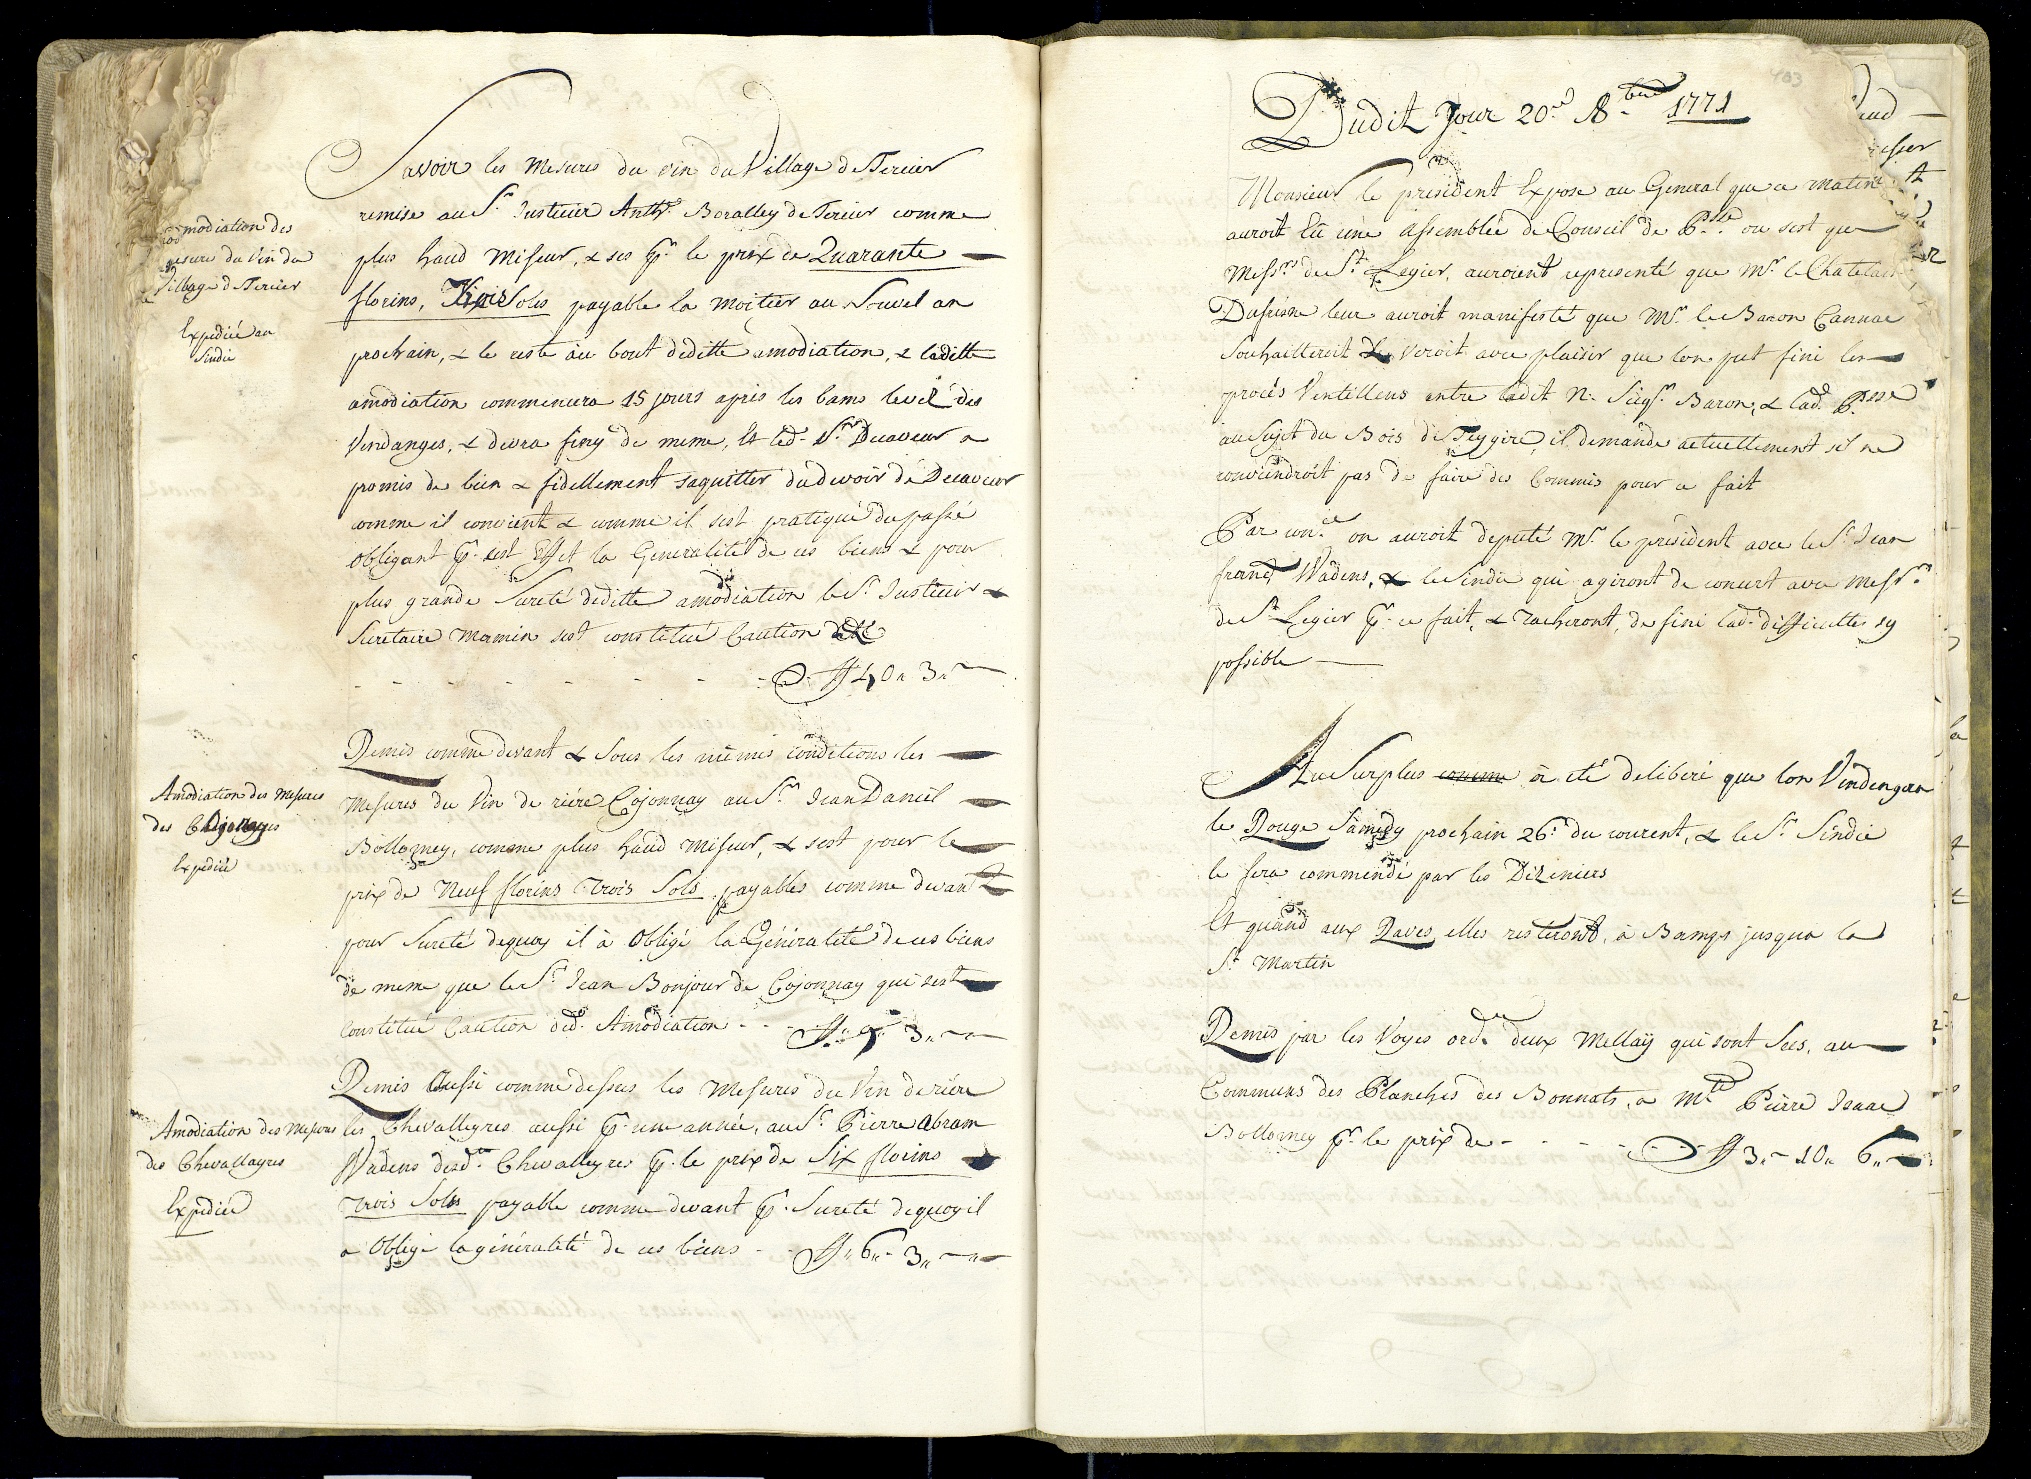 Savoir les Mesures du vin du Village de Tercier
remise au Sr. Justicier Anth. Boralley de Tercier comme
plus haud Miseur, & ses pr. le prix de Quarante
florins, Trois Sols payable la moitier au Nouvel an
prochain, & le reste au bout deditte amodiation, & laditte
amodiation commencera 15 jours apres les bams levé des
Vendanges, & devra finy de meme, Et led. Sr. Decaveur a
promis de bien & fidellement saquitter du devoir de Decaveur
comme il convient & comme il sest pratiqué du passé
obligant pr. cest Effet la Generalité de ces biens & pour
plus grande Sureté deditte amodiation le Sr. Justicier &
Secretaire Mamin sest constitué Caution
ff 40 " 3 "
Amodiation des
mesure du Vin du
Village de Tercier
Expedieé au
Sindic
Remis comme devant & Sous les mêmes conditions les
Mesures du Vin de riére Cojonnay au Sr. Jean Daniel
Bollomey, comme plus haud Miseur, & sest pour le
prix de Neuf florins trois Sols payables comme devant
pour Sureté dequoy il à Obligé la Généralité de ces biens
de meme que le Sr. Jean Bonjour de Cojonnay qui sest
constitué Caution ded. Amodiation - - ff " 9 " 3 "
Amodiation des Mesures
des
Expedieé
Remis Aussi comme dessus les Mesures du Vin de riére
les Chevalleyres aussi pr. une année, au Sr. Pierre Abram
Wadens desd. Chevalleyres pr. le prix de Six florins
trois Sols payable comme devant pr. Sureté dequoy il
a Obligé la généralité de ces biens - - ff " 6 " 3 "
Amodiation des Mesures
des Chevallayres
Expedieé
403
Dudit Jour 20e. 8bre 1771
Monsieur le président Expose au General que ce matin
auroit Eû une Assemblée de Conseil de Bsse. ou sest que
Messrs. de St. Legier, auroient representé que Mr. le Chatelain
Dufresne leur auroit manifesté que Mr. le Baron Cannac
Souhaitteroit & Veroit avec plaisir que lon put fini les
procés Ventillens entre ledit N. Seigr. Baron, & lad. Bsse
au Sujet du Bois de Feygire, il demande actuellement sil ne
conviendroit pas de faire des Commis pour ce fait
Par con.ce on auroit deputé Mr. le président avec le Sr. Jean
francs Wadens, & le Sindic qui agiront de concert avec Messrs.
de St. Legier pr. ce fait, & tacheront, de fini lad. difficultes sy
possible
Au Surplus comme à été deliberé que lon Vendengera
le Rouge Samedy prochain 26e. du courent, & le Sr. Sindic
le fera commendé par les Dizeniers
Et quand aux Raves elles resteront, à Bamps jusqua la
St. Martin
Remis par les Voyes ord. deux Mellay qui sont Secs, au
Communs des Planches des Bonnets, a Mtre Pierre Isaac
Bollomey pr. le prix de - - - - ff 3 " 10 " 6 "